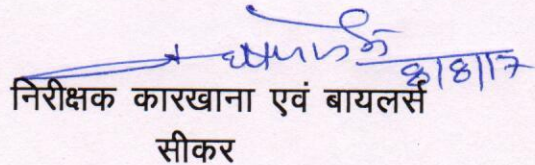 8/8/17
निरीक्षक कारखाना एवं बायलर्स
सीकर